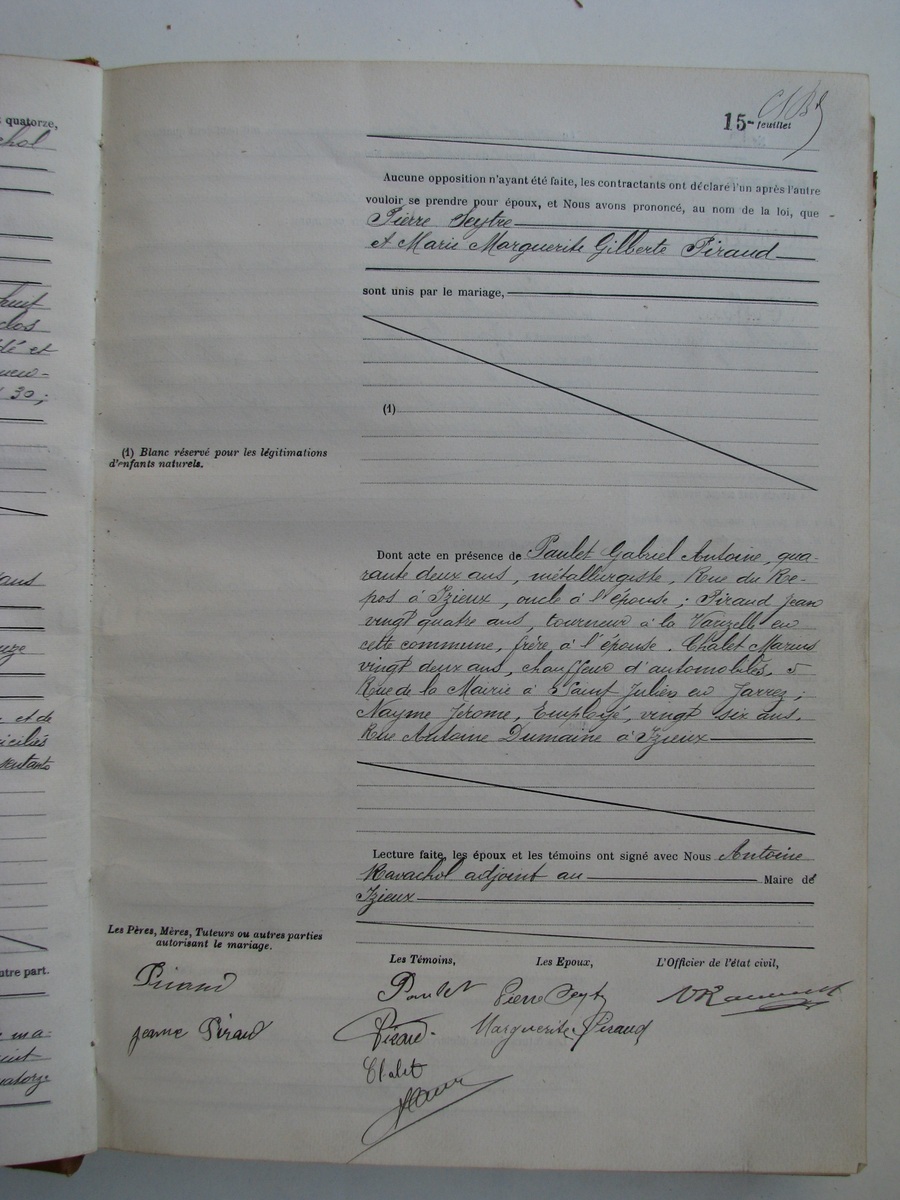 quatorze,
chol
15- feuillet
Aucune opposition n'ayant été faite, les contractants ont déclaré l'un après l'autre
vouloir se prendre pour époux, et Nous avons prononcé, au nom de la loi, que
Pierre Seytre
et Marie Marguerite Gilberte Piraud
sont unis par le mariage,
clos
dé et
30 ;
(1)
(1) Blanc réservé pour les légitimations
d'enfants naturels.
Dont acte en présence de Paulet Gabriel Antoine, qua-
rante deux ans, métallurgiste, Rue du Re-
pos à Izieux, oncle à l'épouse ; Piraud Jean
vingt quatre ans, tourneur à la Varizelle en
cette commune, frère à l'épouse. Chalet Marius
vingt deux ans, chauffeur d'automobiles, 5
Rue de la Mairie à Saint Julien en Jarrez ;
Nayme Jérome, Employé, vingt six ans,
Rue Antoine Dumaine à Izieux
ans
et de
Lecture faite, les époux et les témoins ont signé avec Nous Antoine
Ravachol adjoint au Maire de
Izieux
Les Pères, Mères, Tuteurs ou autres parties
autorisant le mariage.
utre part.
Les Témoins, Les Epoux, L'Officier de l'état civil,
Piraud Paulet Pierre Seytre
Jeanne Piraud Piraud Marguerite Piraud
Chalet